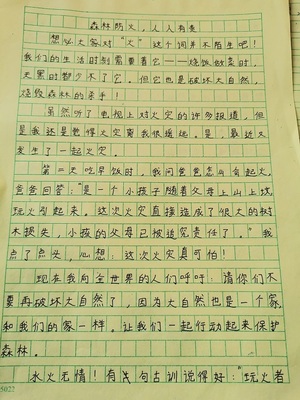 森林防火，人人有责
想必大家对“火”这个词并不陌生吧！
我们的生活时刻需要着它——烧饭做菜时，
天黑时都少不了它。但它也是破坏大自然，
烧毁森林的杀手！
虽然听了电视上对火灾的许多报道，但
是我还是觉得火灾离我很遥远。是，最近又
发生了一起火灾。
第二天吃早饭时，我问爸爸怎么会起火，
爸爸回答：“是一个小孩子随着父母上山上坟，
玩火引起来。这次火灾直接造成了很大的树
木损失，小孩的父母已被追究责任了。”我
点了点头，心想：这次火灾真可怕！
现在我向全世界的人们呼吁：请你们不
要再破坏大自然了，因为大自然也是一个家，
和我们的家一样。让我们一起行动起来保护
森林。
水火无情！有句古训说得好：“玩火者
5022